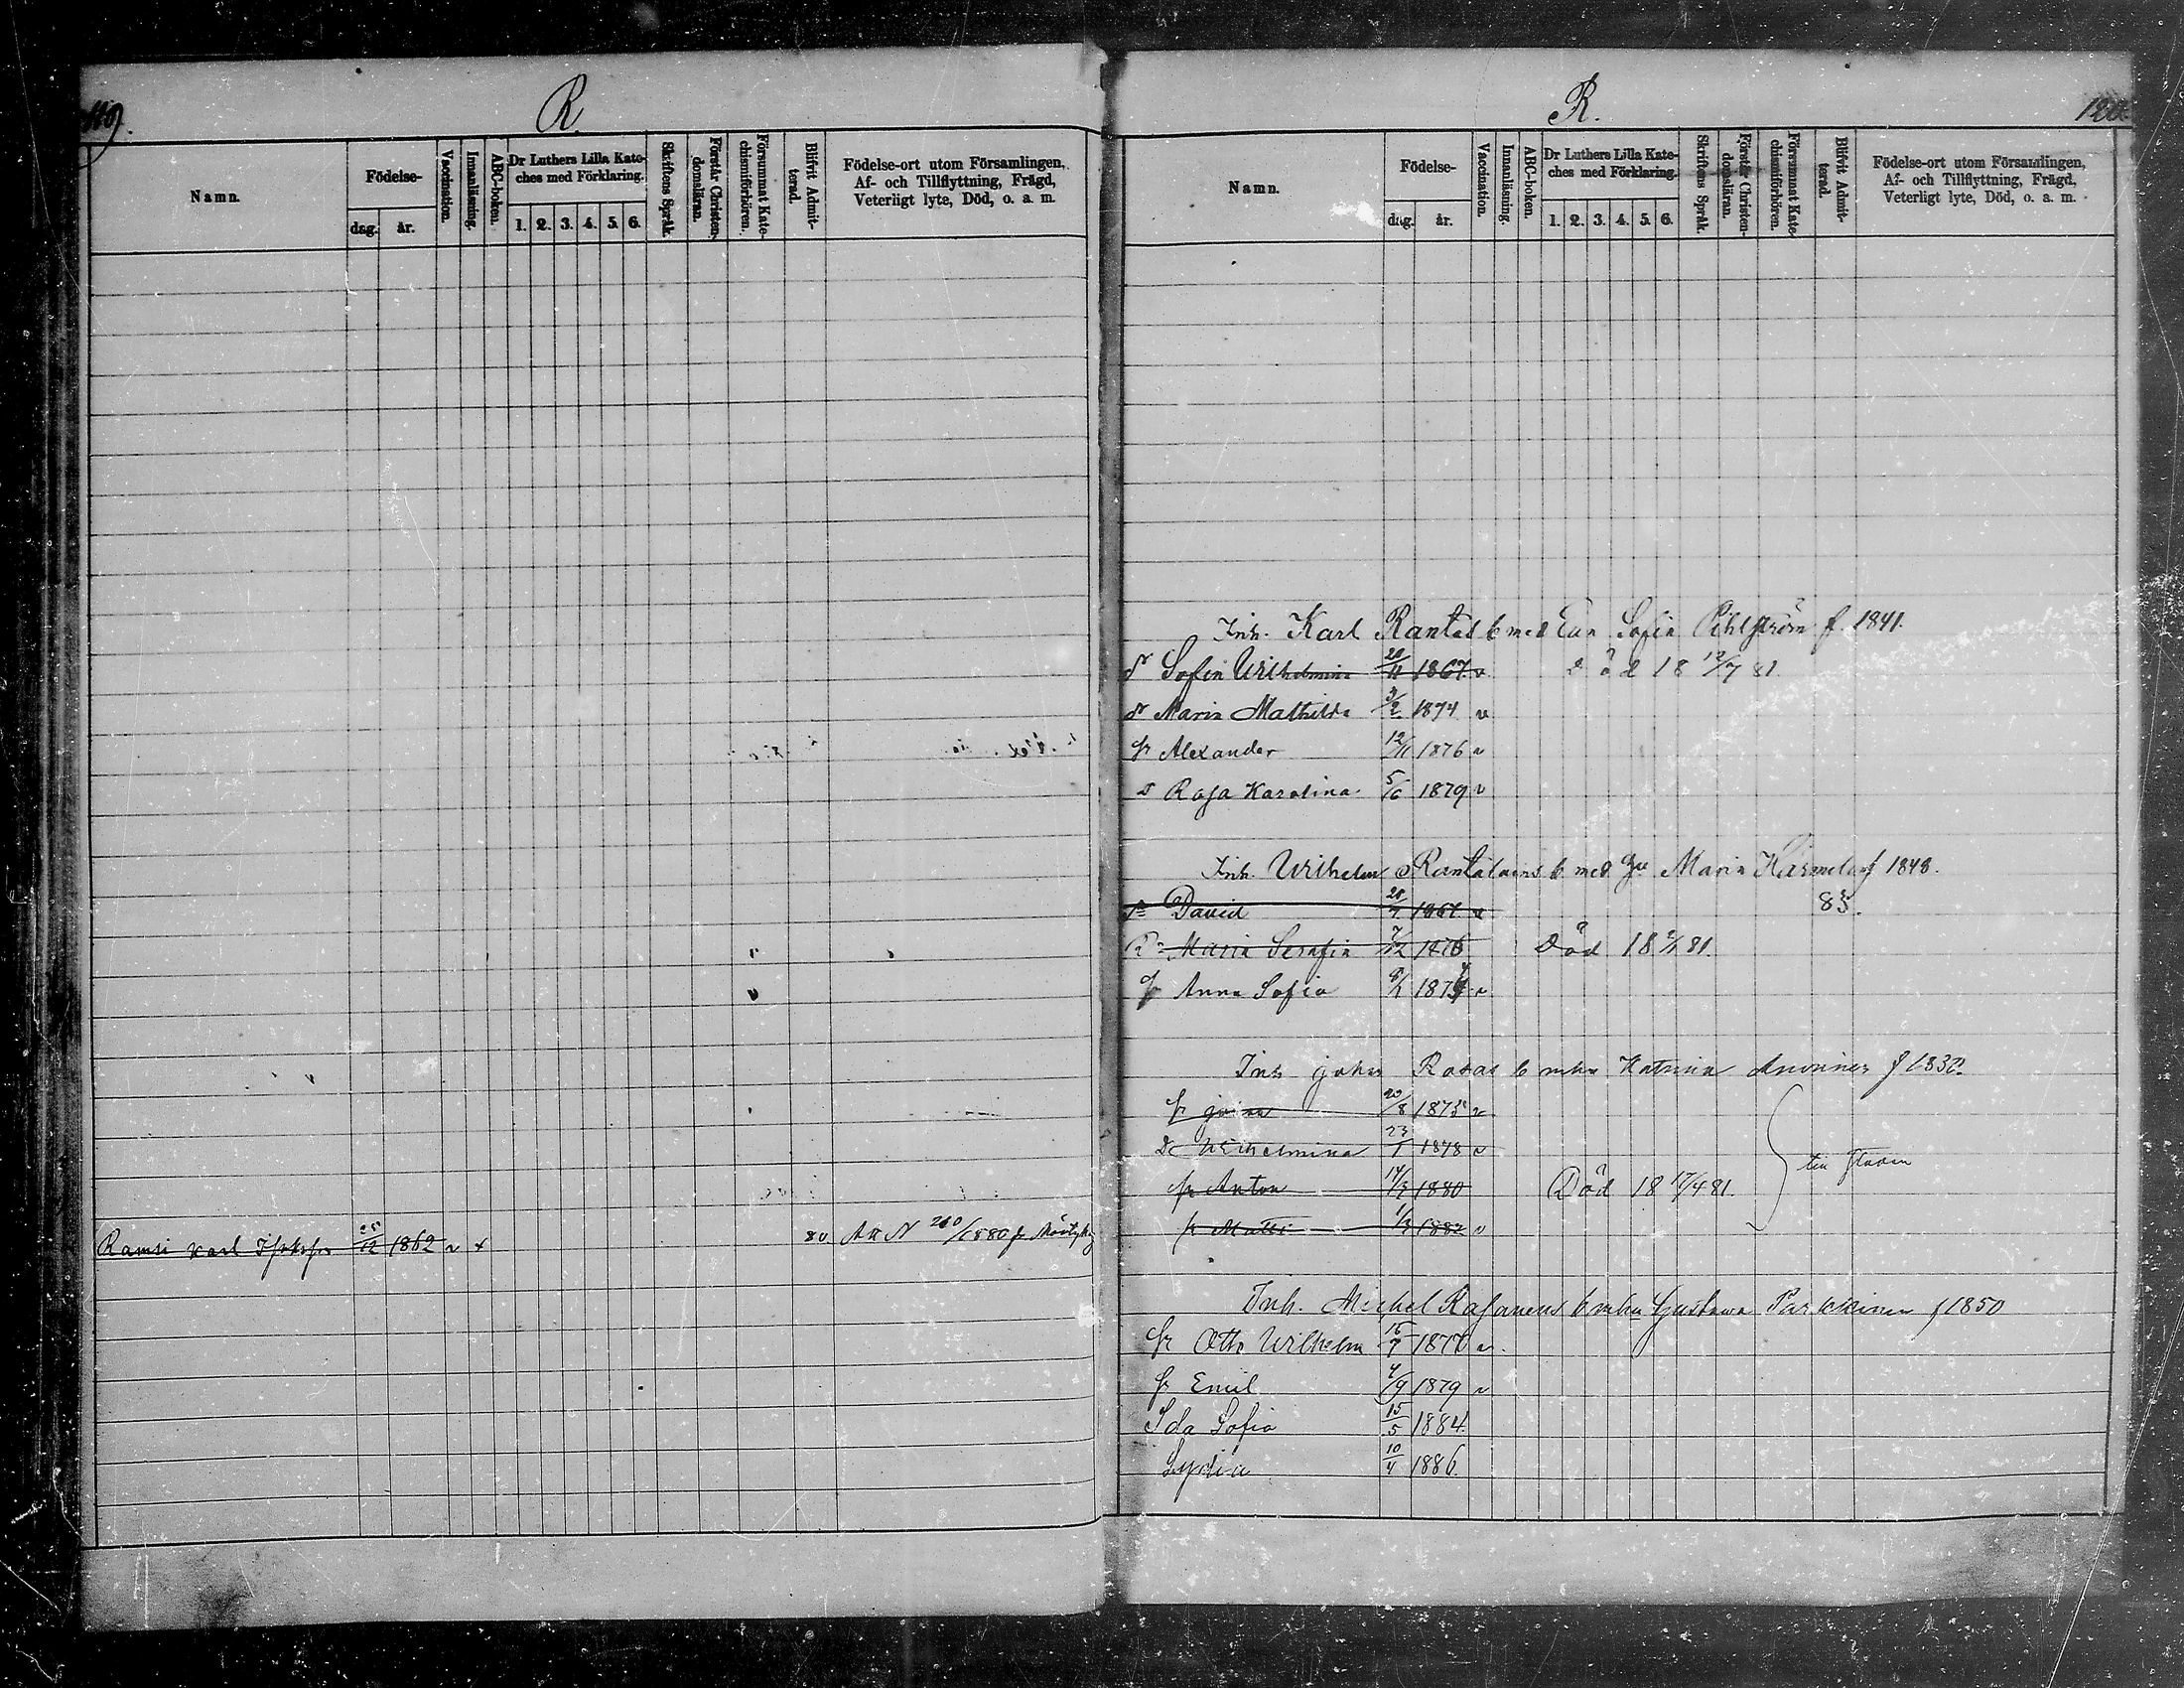 119.
R.
Namn.
Födelse-
dag. år.
Vaccination.
Innanläsning.
ABC-boken.
Dr Luthers Lilla Kate-
ches med Förklaring.
1. 2. 3. 4. 5. 6.
Skriftens Språk.
Förstår Christen-
domsläran.
Försummat Kate-
chismiförhören.
Blifvit Admit-
terad.
Födelse-ort utom Församlingen,
Af- och Tillflyttning, Frägd,
Veterligt lyte, Död, o. a. m.
Ramsi Karl 12 1862 v + 80
R.
120.
Namn.
Födelse-
dag. år.
Vaccination.
Innanläsning.
ABC-boken.
Dr Luthers Lilla Kate-
ches med Förklaring.
1. 2. 3. 4. 5. 6.
Skriftens Språk.
Förstår Christen-
domsläran.
Försummat Kate-
chismiförhören.
Blifvit Admit-
terad.
Födelse-ort utom Församlingen,
Af- och Tillflyttning, Frägd,
Veterligt lyte, Död, o. a. m.
Inh. Karl b med Eva Sofia Pihlström f. 1841.
Sofia Wilhelmina 20/11 1867 v död 18 12/7 81.
Maria Mathilda 3/2 1874 v
Alexander 12/11 1876 v
Rosa Karolina 5/6 1879 v
Inh. Wilhelm b med Maria f 1848.
David 1867 v 85.
Maria Serafia 7/12 Död 18 81.
Anna Sofia v
Inh Johan b Katrina f 1832
20/8 1875 v
Wilhelmina 23/1 1878 v
Anton 14/3 1880 Död 18 17/4 81.
Matti 1/3 1882 v
Inh. Michel b Gustava Parkkinen f 1850
Otto Wilhelm 15/7 1877 v.
Emil 1879 v
Ida Sofia 15/5 1884.
Lydia 10/4 1886.